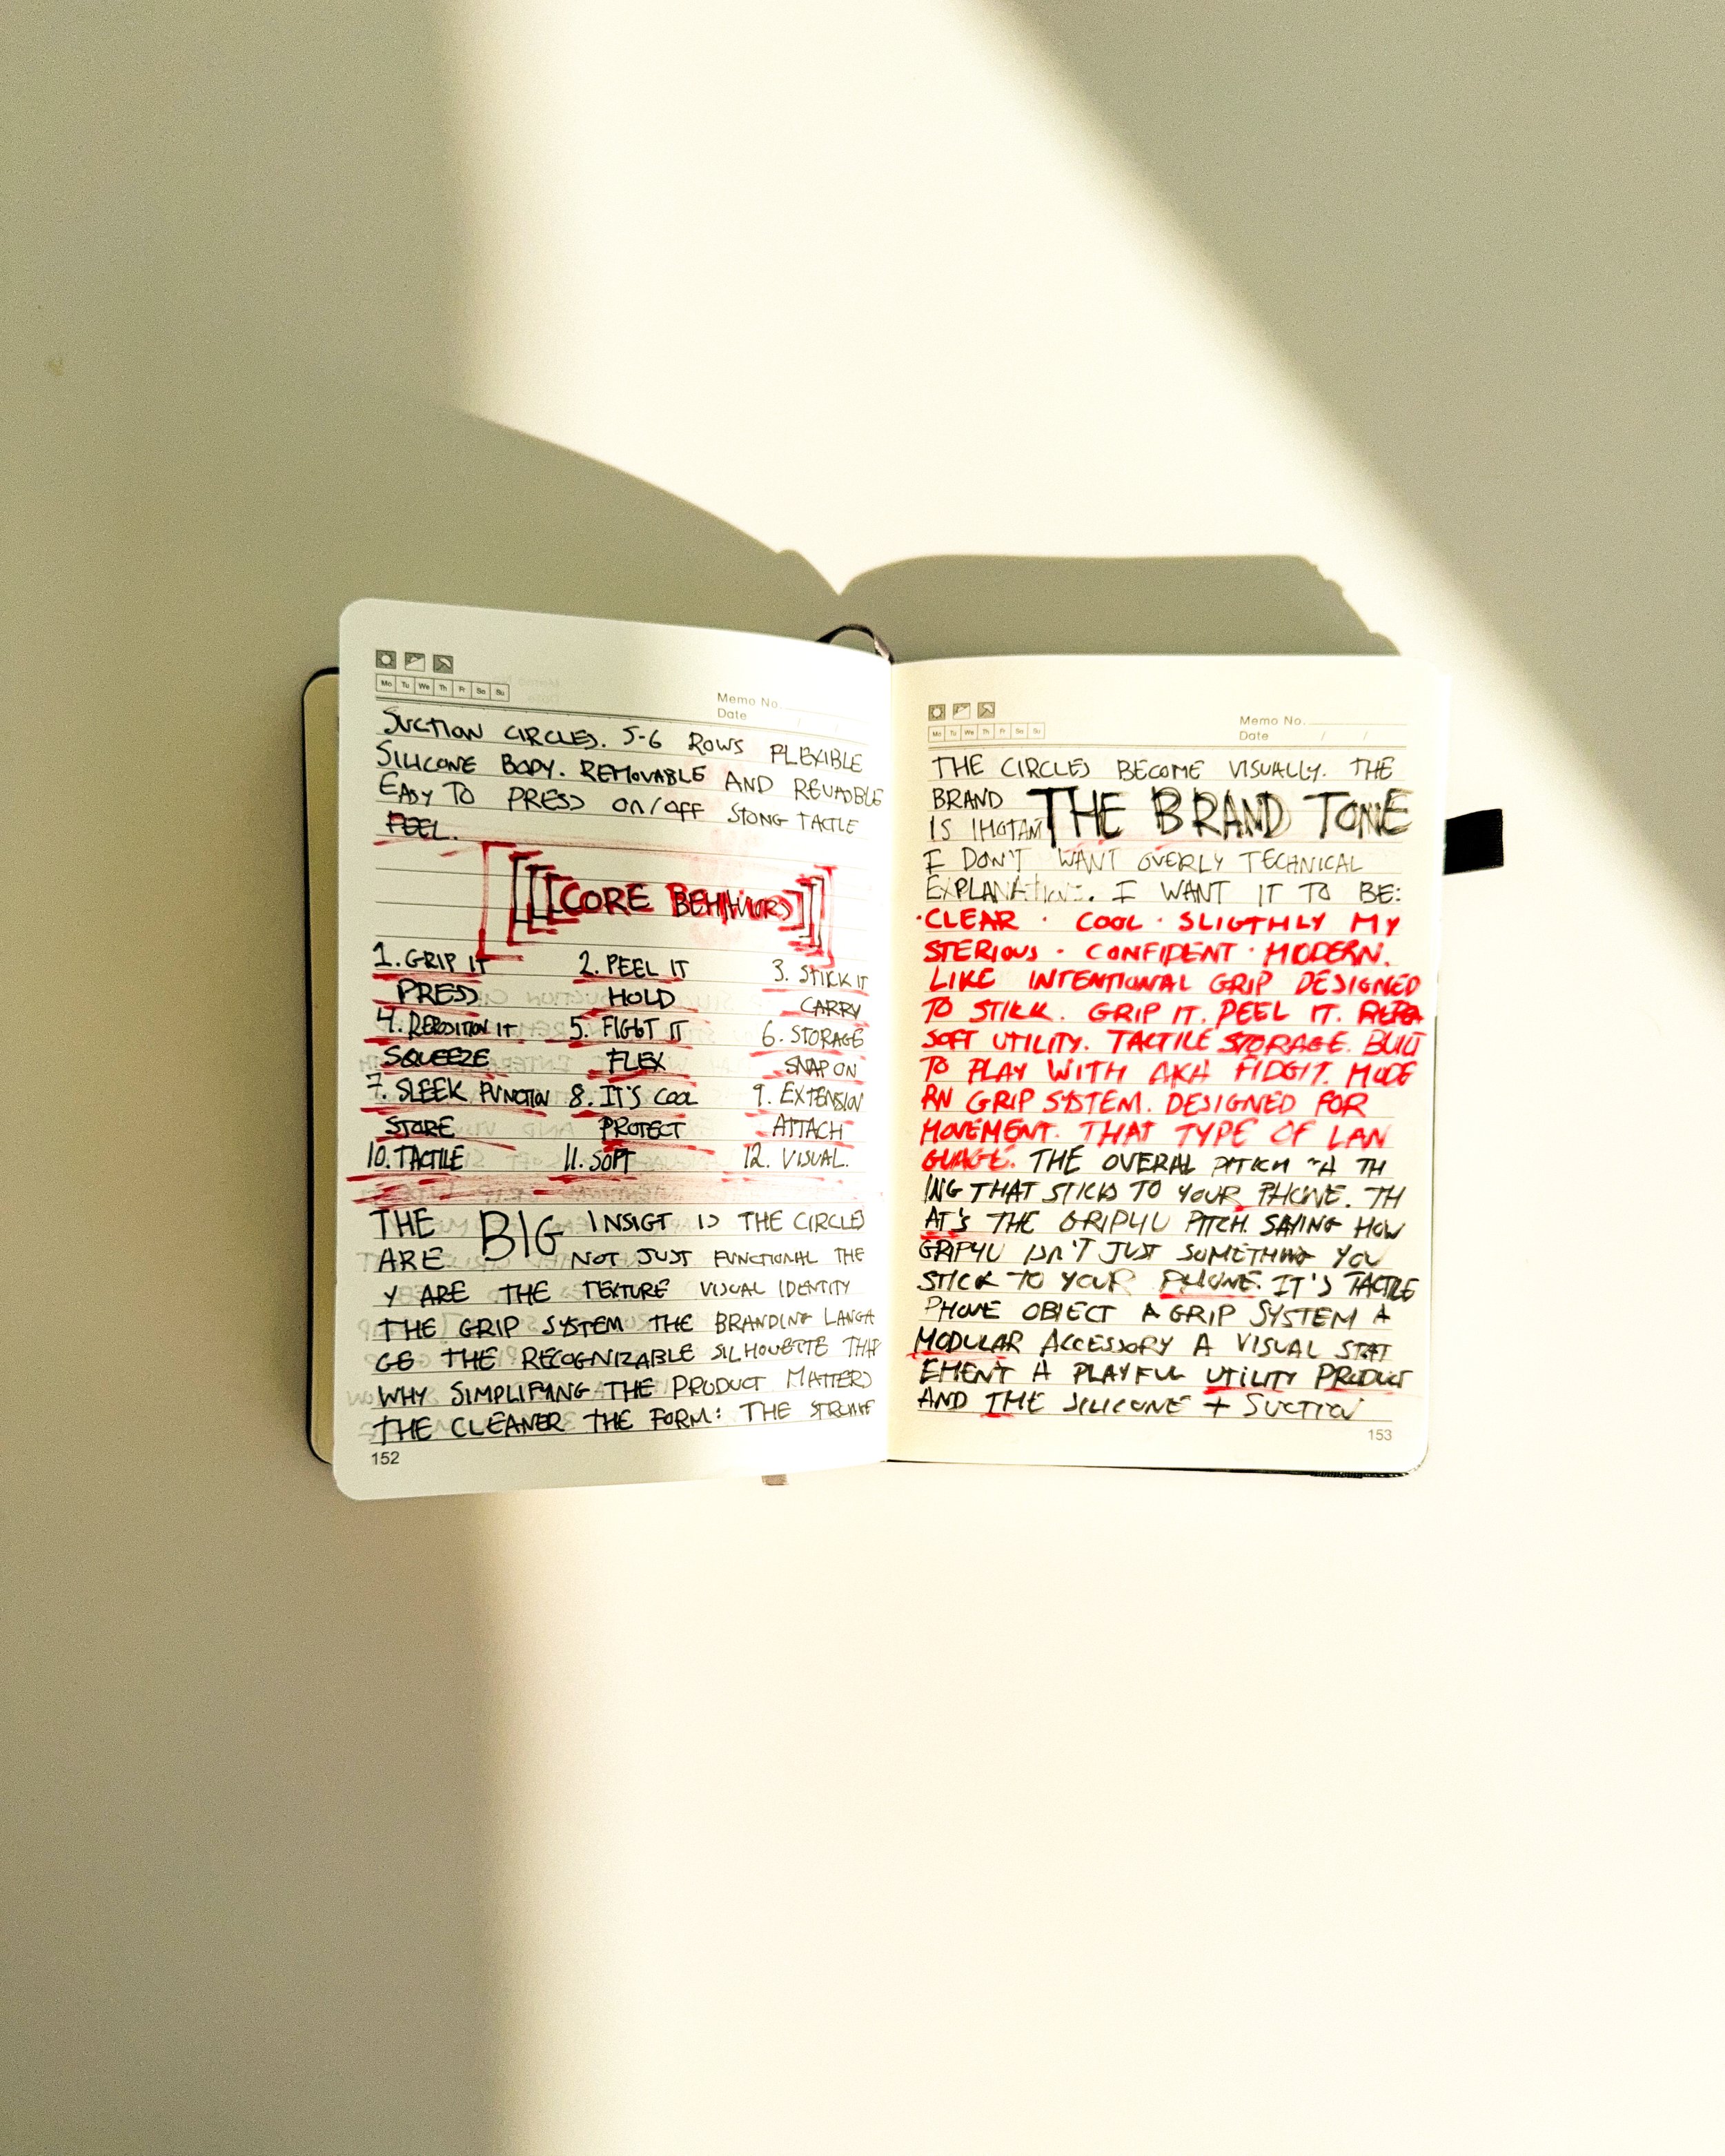 Mo Tu We Th Fr Sa Su
Memo No.
Date / /
SUCTION CIRCLES. 5-6 ROWS FLEXIBLE
SILICONE BODY. REMOVABLE AND REUASBLE
EASY TO PRESS ON/OFF STONG TACTLE
FEEL.
[[[[CORE BEHAVIORS]]]]
1. GRIP IT 2. PEEL IT 3. STICK IT
PRESS HOLD CARRY
4. REPOSITION IT 5. FIGGT IT 6. STORAGE
SQUEEZE FLEX SNAP ON
7. SLEEK FUNCTION 8. IT'S COOL 9. EXTENSION
STORE PROTECT ATTACH
10. TACTILE 11. SOFT 12. VISUAL.
THE BIG INSIGT IS THE CIRCLES
ARE NOT JUST FUNCTIONAL THE
Y ARE THE TEXTURE VISUAL IDENTITY
THE GRIP SYSTEM THE BRANDING LANGA
GE THE RECOGNIZABLE SILHOUETTE THAT
WHY SIMPLIFYING THE PRODUCT MATTERS
THE CLEANER THE FORM: THE
152
Mo Tu We Th Fr Sa Su
Memo No.
Date / /
THE CIRCLES BECOME VISUALLY. THE
BRAND THE BRAND TONE
IS
I DON'T WANT OVERLY TECHNICAL
I WANT IT TO BE:
·CLEAR · COOL · SLIGTHLY MY
STERIOUS · CONFIDENT · MODERN.
LIKE INTENTIONAL GRIP DESIGNED
TO STICK. GRIP IT. PEEL IT.
SOFT UTILITY. TACTILE STORAGE. BUILT
TO PLAY WITH AKA FIDGIT. MODE
RN GRIP SYSTEM. DESIGNED FOR
MOVEMENT. THAT TYPE OF LAN
GUAGE. THE OVERAL PITCH "A TH
ING THAT STICKS TO YOUR PHONE. TH
AT'S THE GRIP4U PITCH. SAYING HOW
GRIP4U ISN'T JUST SOMETHING YOU
STICK TO YOUR PHONE. IT'S TACTILE
PHONE OBJECT A GRIP SYSTEM A
MODULAR ACCESSORY A VISUAL STAT
EMENT A PLAYFUL UTILITY PRODUCT
AND THE SILICONE + SUCTION
153